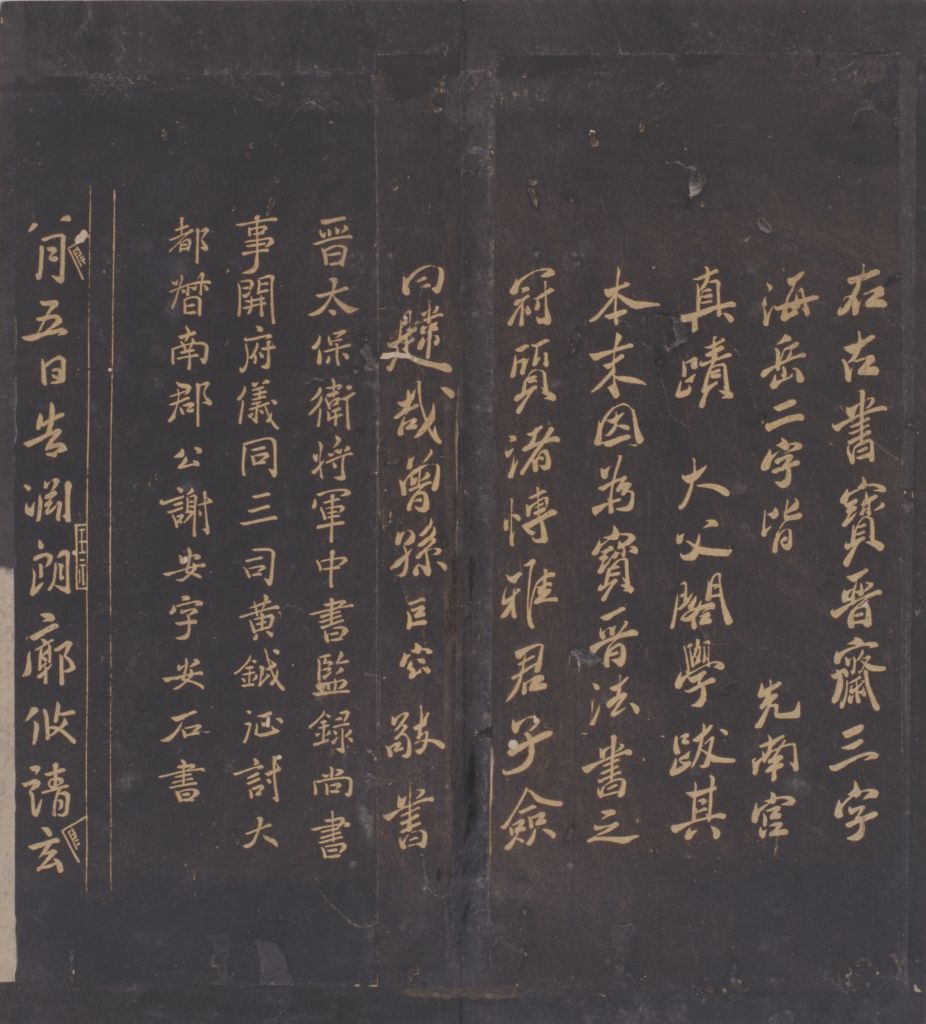 右古書寶晉齋三字
海岳二字皆 先南宮
真蹟 大父閣學跋其
本末因為寶晉法書之
冠質諸愽雅君子僉
曰韙哉曾孫巨容敬書
晋太保衛將軍中書監録尚書
事開府儀同三司黄鉞征討大
都督南郡公謝安字安石書
八月五日告渊朗廓攸靖玄